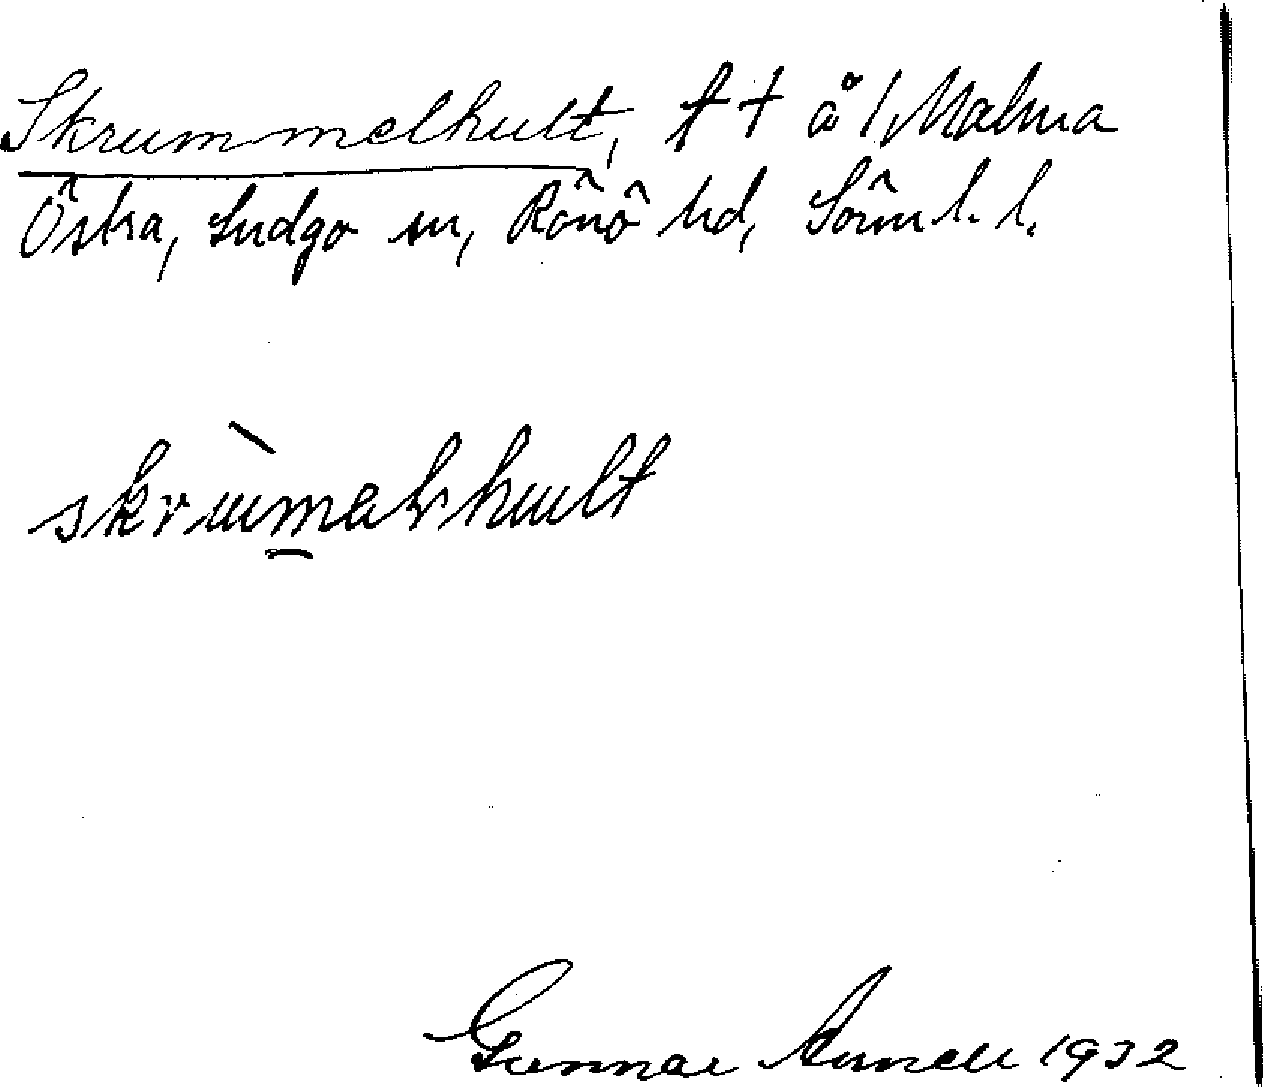 Skrummelhult, f † å /, Malma
Östra, Ludgo sn, Rönö hd, Sörml. l.
skrumalhult
Gunnar 1932